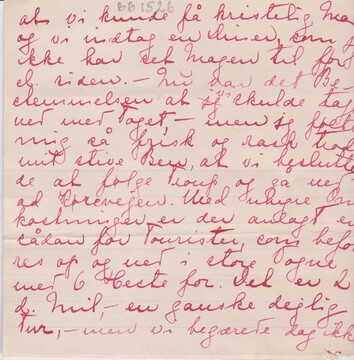 BB1526
at vi kunde få kristelig Mad
og vi indtog en Diner, som j
ikke har set Magen til før
el. siden. – Nu var det Be-
stemmelsen at vi skulde tag
ned med Toget, – men jeg følt
mig så frisk og rask trods
mit stive Ben, at vi beslutte
de at følge Trop og gå ned
ad Kørevejen. Med uhyre Om
kostninger er der anlagt en
sådan for Tourister, som befor
res op og ned i store Vogne
med 6 Heste for. Det er 2
d. Mil, – en ganske dejlig
Tur, – men vi begærede dog ikk